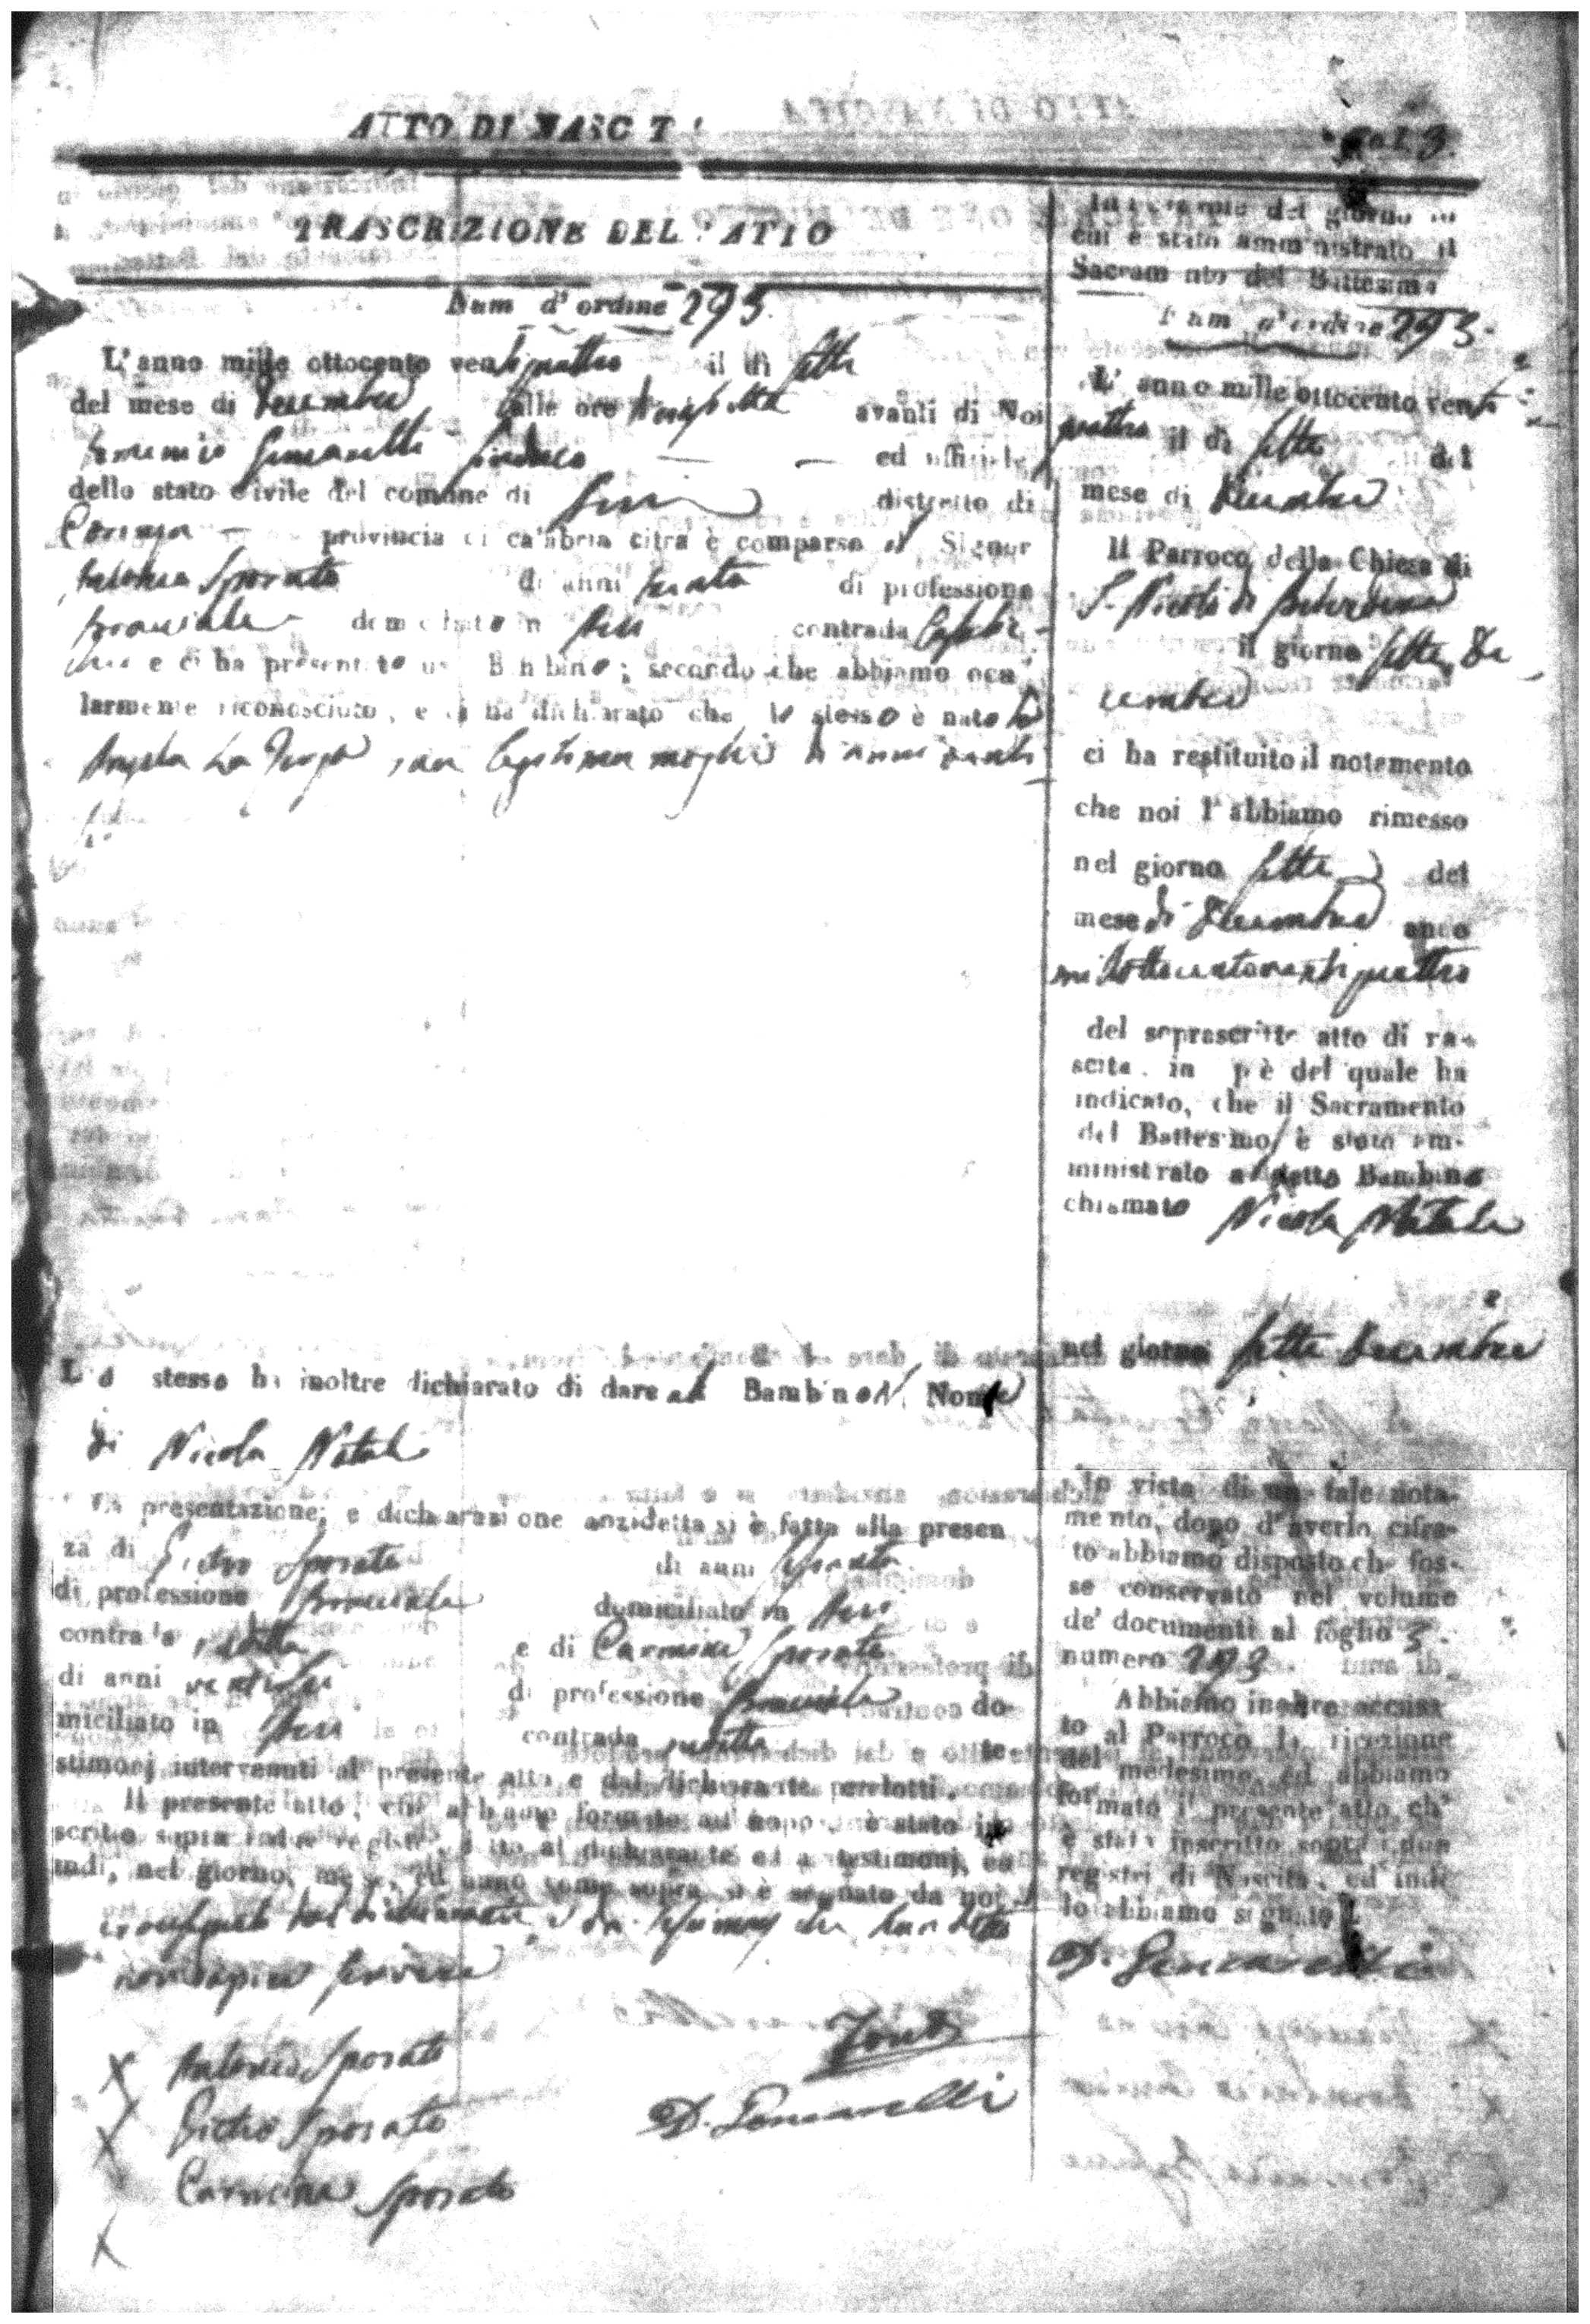 ATTO DI NASC T
Fol. 3.
TRASCRIZIONE DELL'ATTO
Num d'ordine 293.
L'anno mille ottocento ventiquattro il di sette
del mese di Decembre alle ore avanti di Noi
Sindaco ed ufficiale
dello stato civile del comune di distretto di
Cosenza provincia di calabria citra è comparso il Signor
Antonio Sposato di anni trenta di professione
Bracciale domiciliato in Acri contrada
e ci ha presentato un Bambino; secondo che abbiamo ocu
larmente riconosciuto, e ci ha dichiarato che lo stesso è nato da
Angela La sua legittima moglie di anni venti
Lo stesso ha inoltre dichiarato di dare al Bambino il Nome
di Nicola Natale
La presentazione, e dichiarazione anzidetta si è fatta alla presen
za di Pietro Sposato di anni
di professione Bracciale domiciliato in Acri
contrada suddetta e di Carmine Sposato
di anni di professione Bracciale do-
miciliato in Acri contrada suddetta te-
stimonj intervenuti al presente atto e dal dichiarante perdotti.
Il presente atto, che abbiamo formato all'uopo, è stato in
scritto sopra i due registri, letto al dichiarante ed a testimonj, ed
indi, nel giorno, mese, ed anno come sopra si è segnato da noi
dichiarante, e da testimonj han detto
non sapere scrivere
X Antonio Sposato
X Pietro Sposato
Carmine Sposato
X
D. Gencarelli
In cui è del giorno in
cui è stato amministrato il
Sacramento del Battesimo
Num d'ordine 293.
L'anno mille ottocento venti
quattro il di sette del
mese di Decembre
Il Parroco della Chiesa di
S. Nicola di
il giorno sette De
cembre
ci ha restituito il notamento
che noi l'abbiamo rimesso
nel giorno sette del
mese di Decembre anno
millottocentoventiquattro
del soprascritto atto di na-
scita. in piè del quale ha
indicato, che il Sacramento
del Battesimo è stato am-
ministrato al detto Bambino
chiamato Nicola Natale
nel giorno sette Decembre
In vista di un tale nota-
mento, dopo d'averlo cifra-
to abbiamo disposto che fos-
se conservato nel volume
de' documenti al foglio 3.
numero 293.
Abbiamo inoltre accusa
to al Parroco la ricezione
del medesimo, ed abbiamo
formato il presente atto ch'
è stato inscritto sopra i due
registri di Nascita, ed indi
lo abbiamo segnato
D. Gencarelli